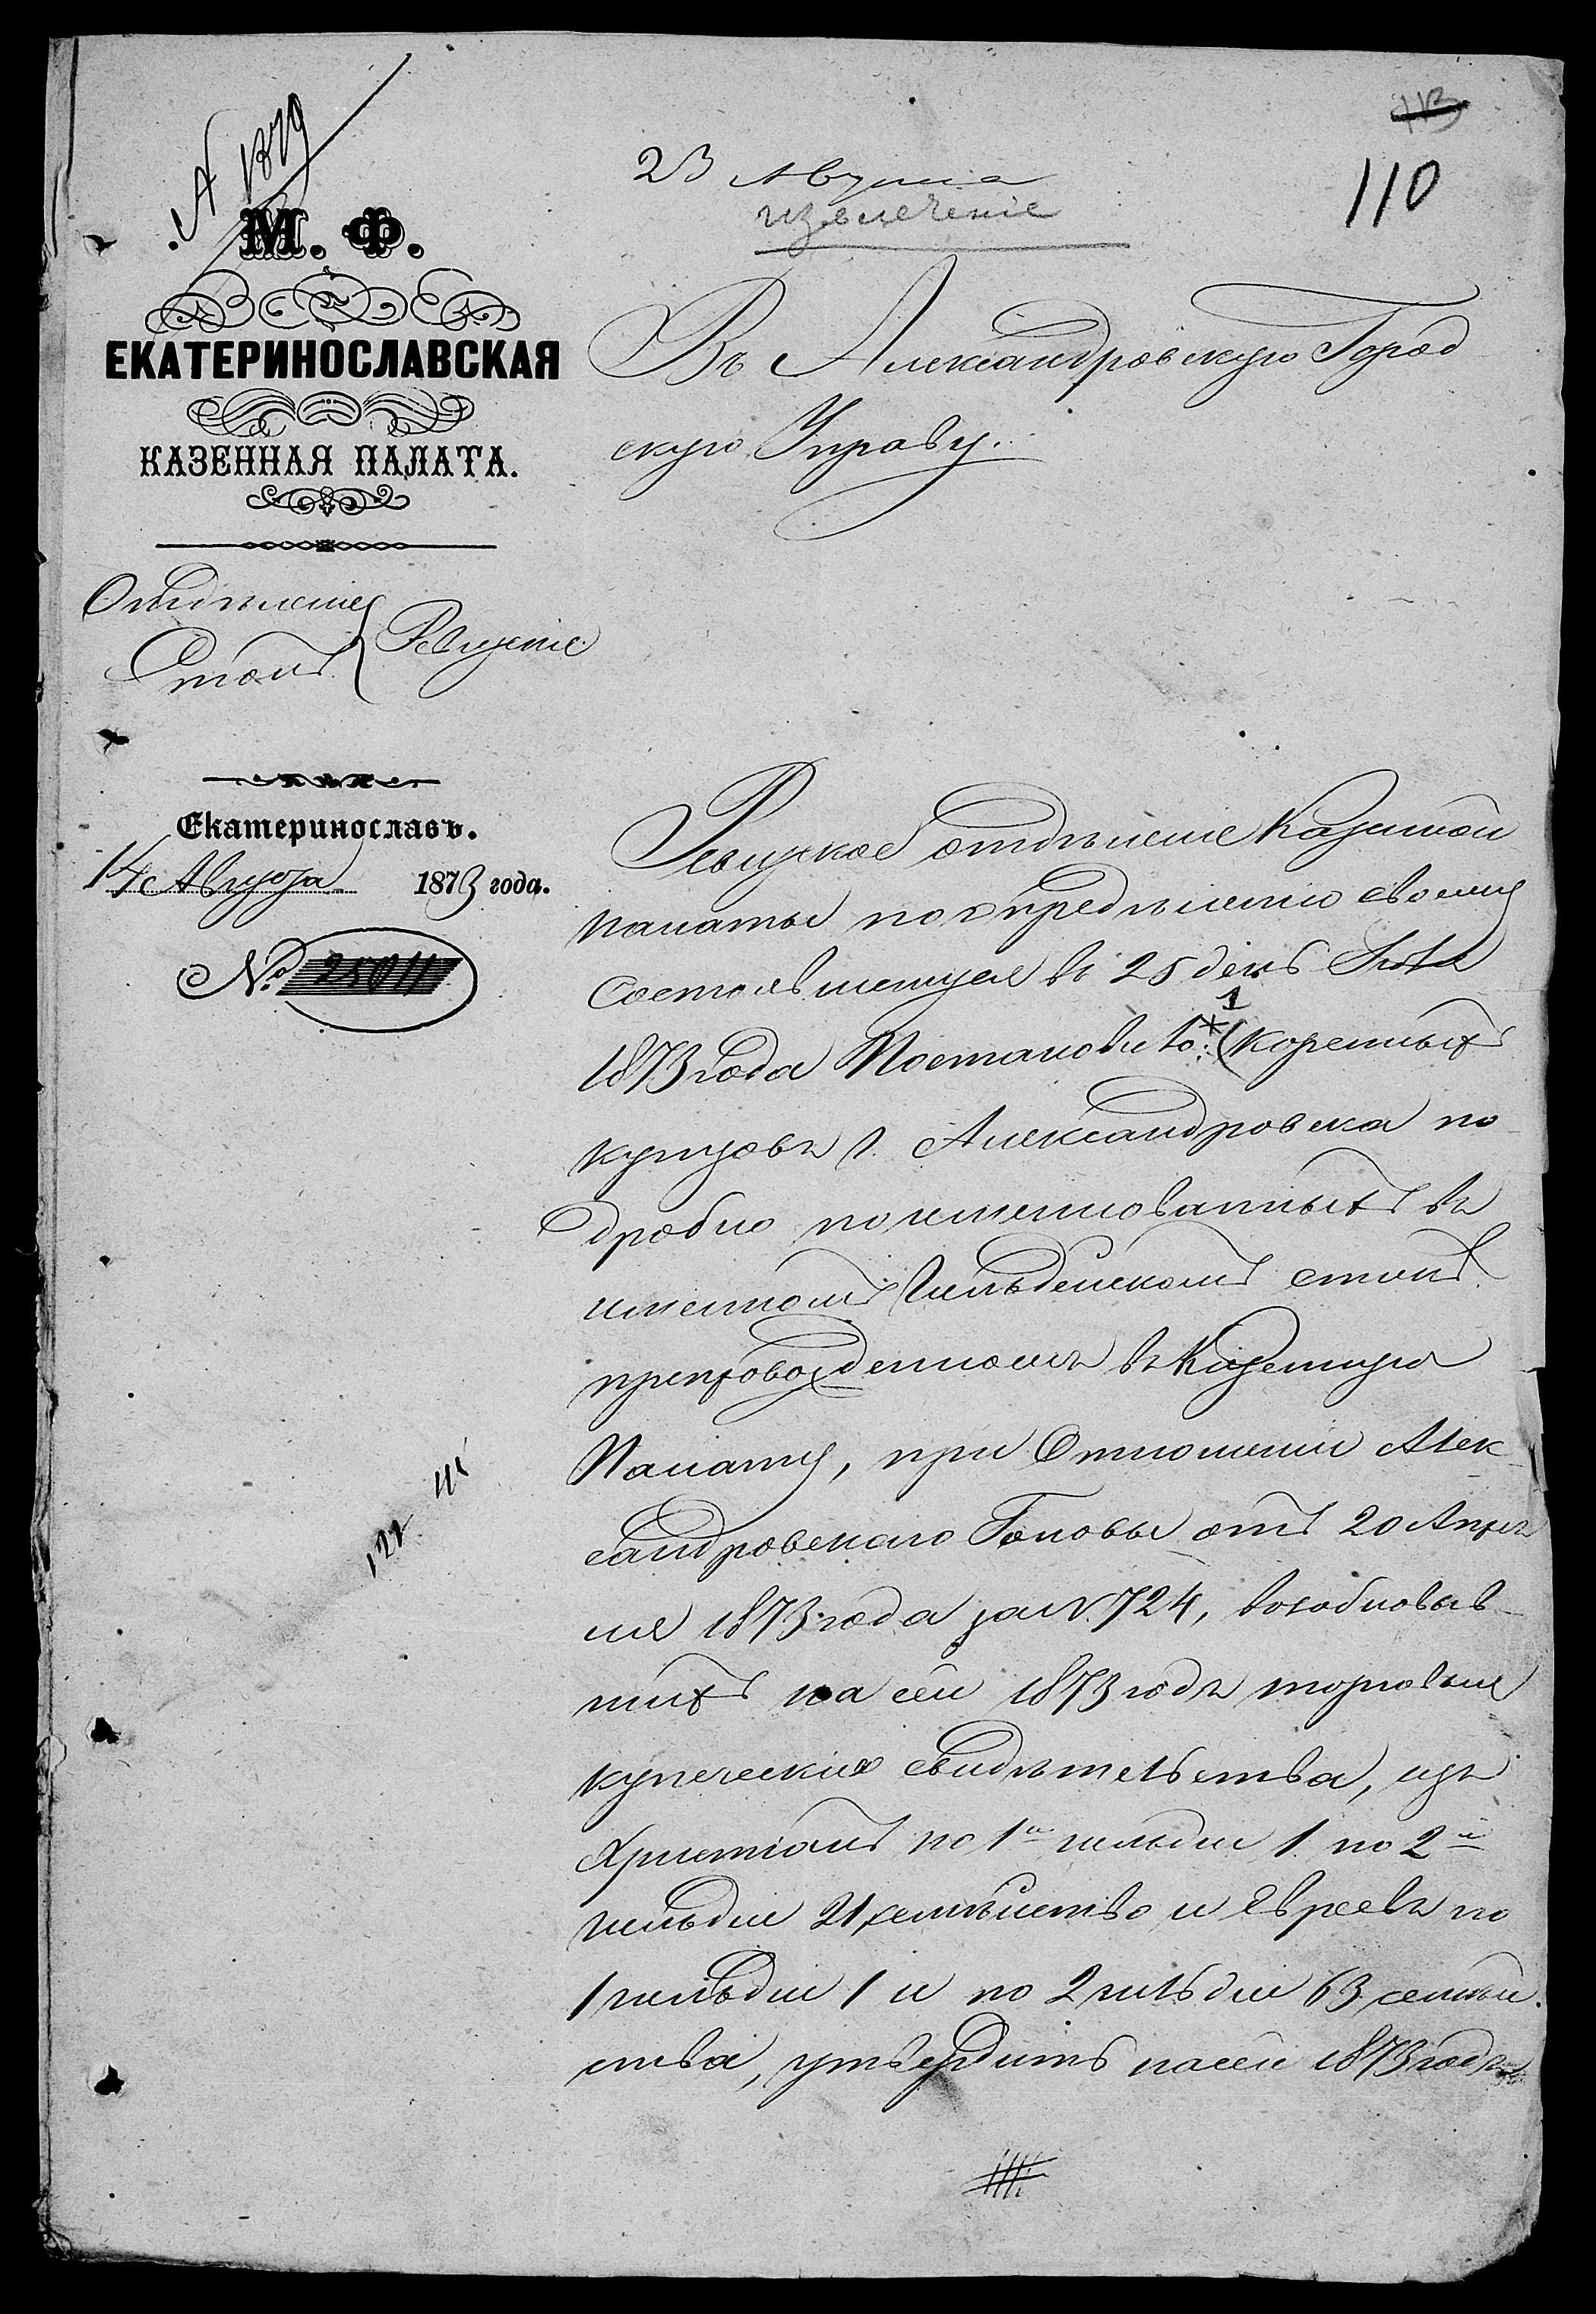 № 1379
113
110
23 Августа
извлеченіе
М. Ф.
ЕКАТЕРИНОСЛАВСКАЯ
КАЗЕННАЯ ПАЛАТА.
Отдѣленіе
Столъ
Ревизскіе
Екатеринославъ.
14 Августа 1873 года.
№ 25011
Въ Александровскую Город
скую Управу.
Ревизское отдѣленіе Казенной
палаты по опредѣленію своему
состоявшемуся въ 25 день Іюля
1873 года Постановило: 1 * (коренныхъ
купцовъ г. Александровска по
дробно поименованныхъ въ
именномъ Гильдейскомъ спискѣ
препровожденномъ въ Казенную
Палату, при Отношеніи Алек
сандровскаго Головы отъ 20 Апрѣ
ля 1873 года за N. 724, возобновив
шихъ на сей 1873 годъ торговыя
купеческія свидѣтельства, изъ
Христіанъ по 1й гильдіи 1. по 2й
гильдіи 21 семѣйство и Евреевъ по
1 гильдіи 1 и по 2 гильдіи 63 семѣй
ства, утвердить на сей 1873 годъ